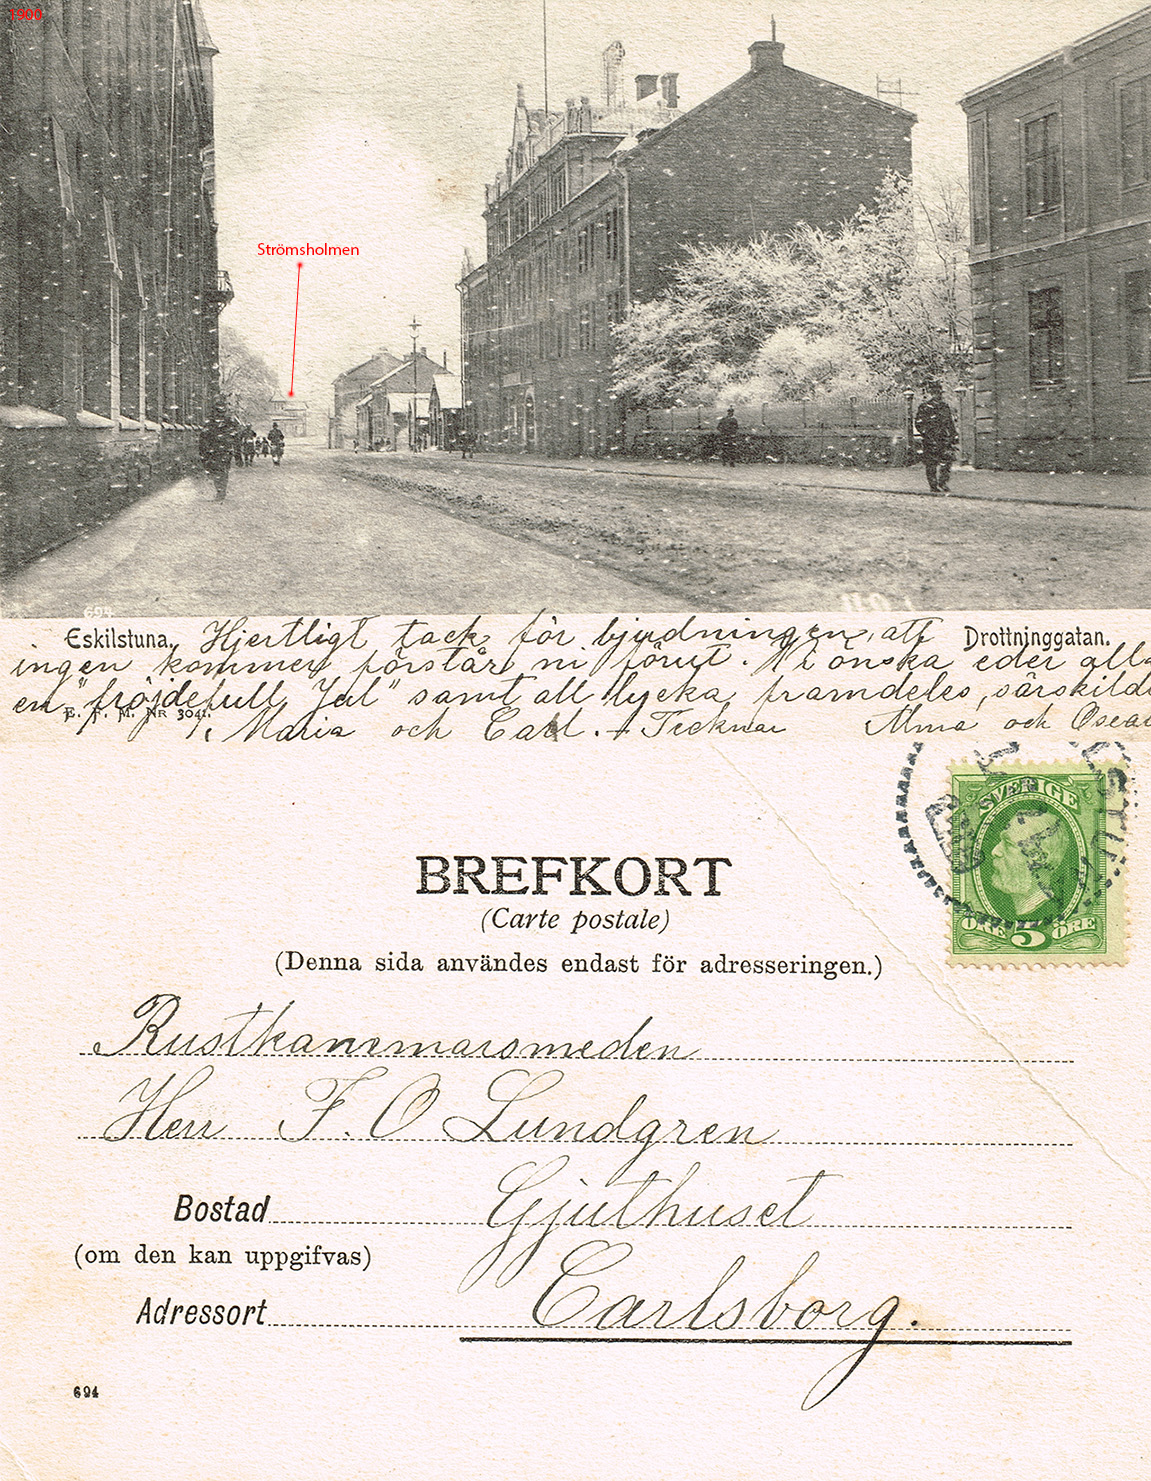 1900
Strömsholmen
694
Eskilstuna. Hjertligt tack för bjudningen, att Drottninggatan.
ingen kommer förstår ni förut. Vi önska eder alla
en "fröjdefull Jul" samt all lycka framdeles, särskildt
E. F. M. Nr 3041.
Maria och Carl. Tecknar Alma och Oscar
SVERIGE
5
ÖRE ÖRE
BREFKORT
(Carte postale)
(Denna sida användes endast för adresseringen.)
Rustkammarsmeden
Herr F. O Lundgren
Bostad Gjuthuset
(om den kan uppgifvas)
Adressort Carlsborg.
694